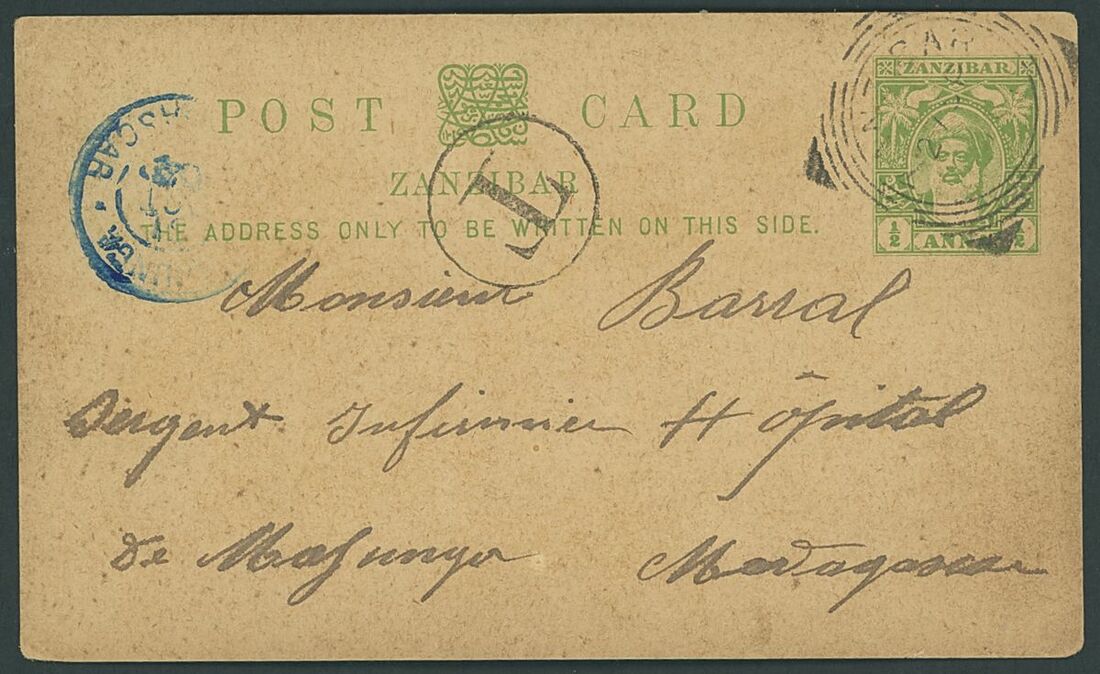 POST CARD
ZANZIBAR
THE ADDRESS ONLY TO BE WRITTEN ON THIS SIDE.
ZANZIBAR
½ ANNA ½
T
Monsieur Barral
Sergent Infirmier Hôpital
de Majunga Madagascar